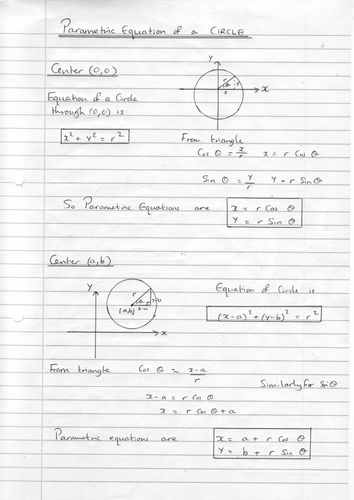 Parametric Equation of a CIRCLE
Center (0,0)
Y
r
y
θ
x
x
Equation of a Circle
through (0,0) is
x² + y² = r²
From triangle
Cos θ = x/r x = r Cos θ
Sin θ = y/r Y = r Sin θ
So Parametric Equations are
x = r Cos θ
Y = r Sin θ
Center (a,b)
Y
r
θ
y-b
x-a
(a,b)
x
Equation of Circle is
(x-a)² + (y-b)² = r²
From triangle Cos θ = x-a/r
Similarly for Sin θ
x-a = r Cos θ
x = r Cos θ + a
Parametric equations are
x = a + r Cos θ
Y = b + r Sin θ